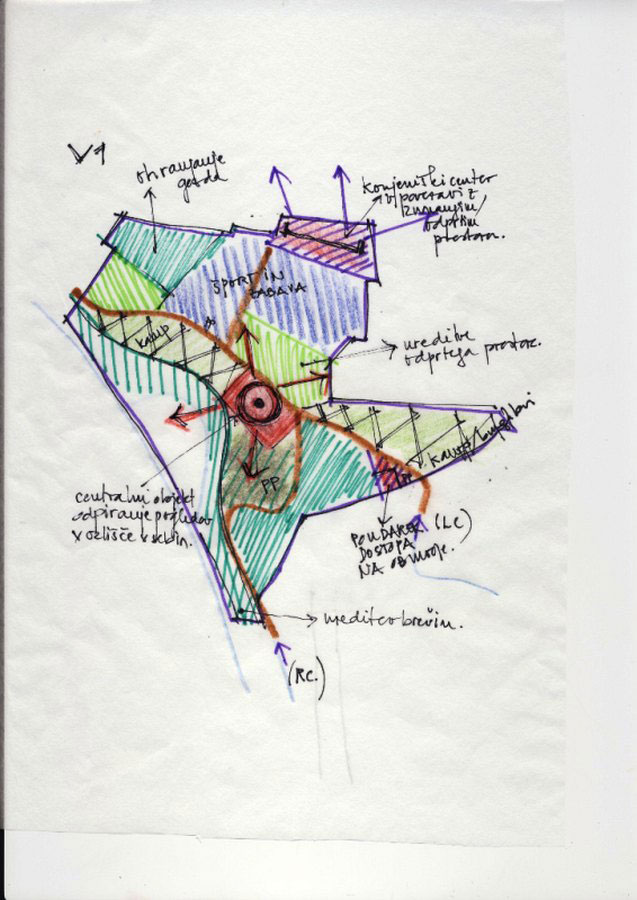 V1
ohranjanje
gozda
konjeniški center
v povezavi z
zunanjim
odprtim
prostora.
ŠPORT IN
ZABAVA
kamp
ureditev
odprtega prostora.
kamp/bungalovi
PP
centralni objekt
odpiranje pogledov
POUDAREK (LC)
DOSTOPA
NA OBMOČJE.
ureditev brežin.
(RC.)